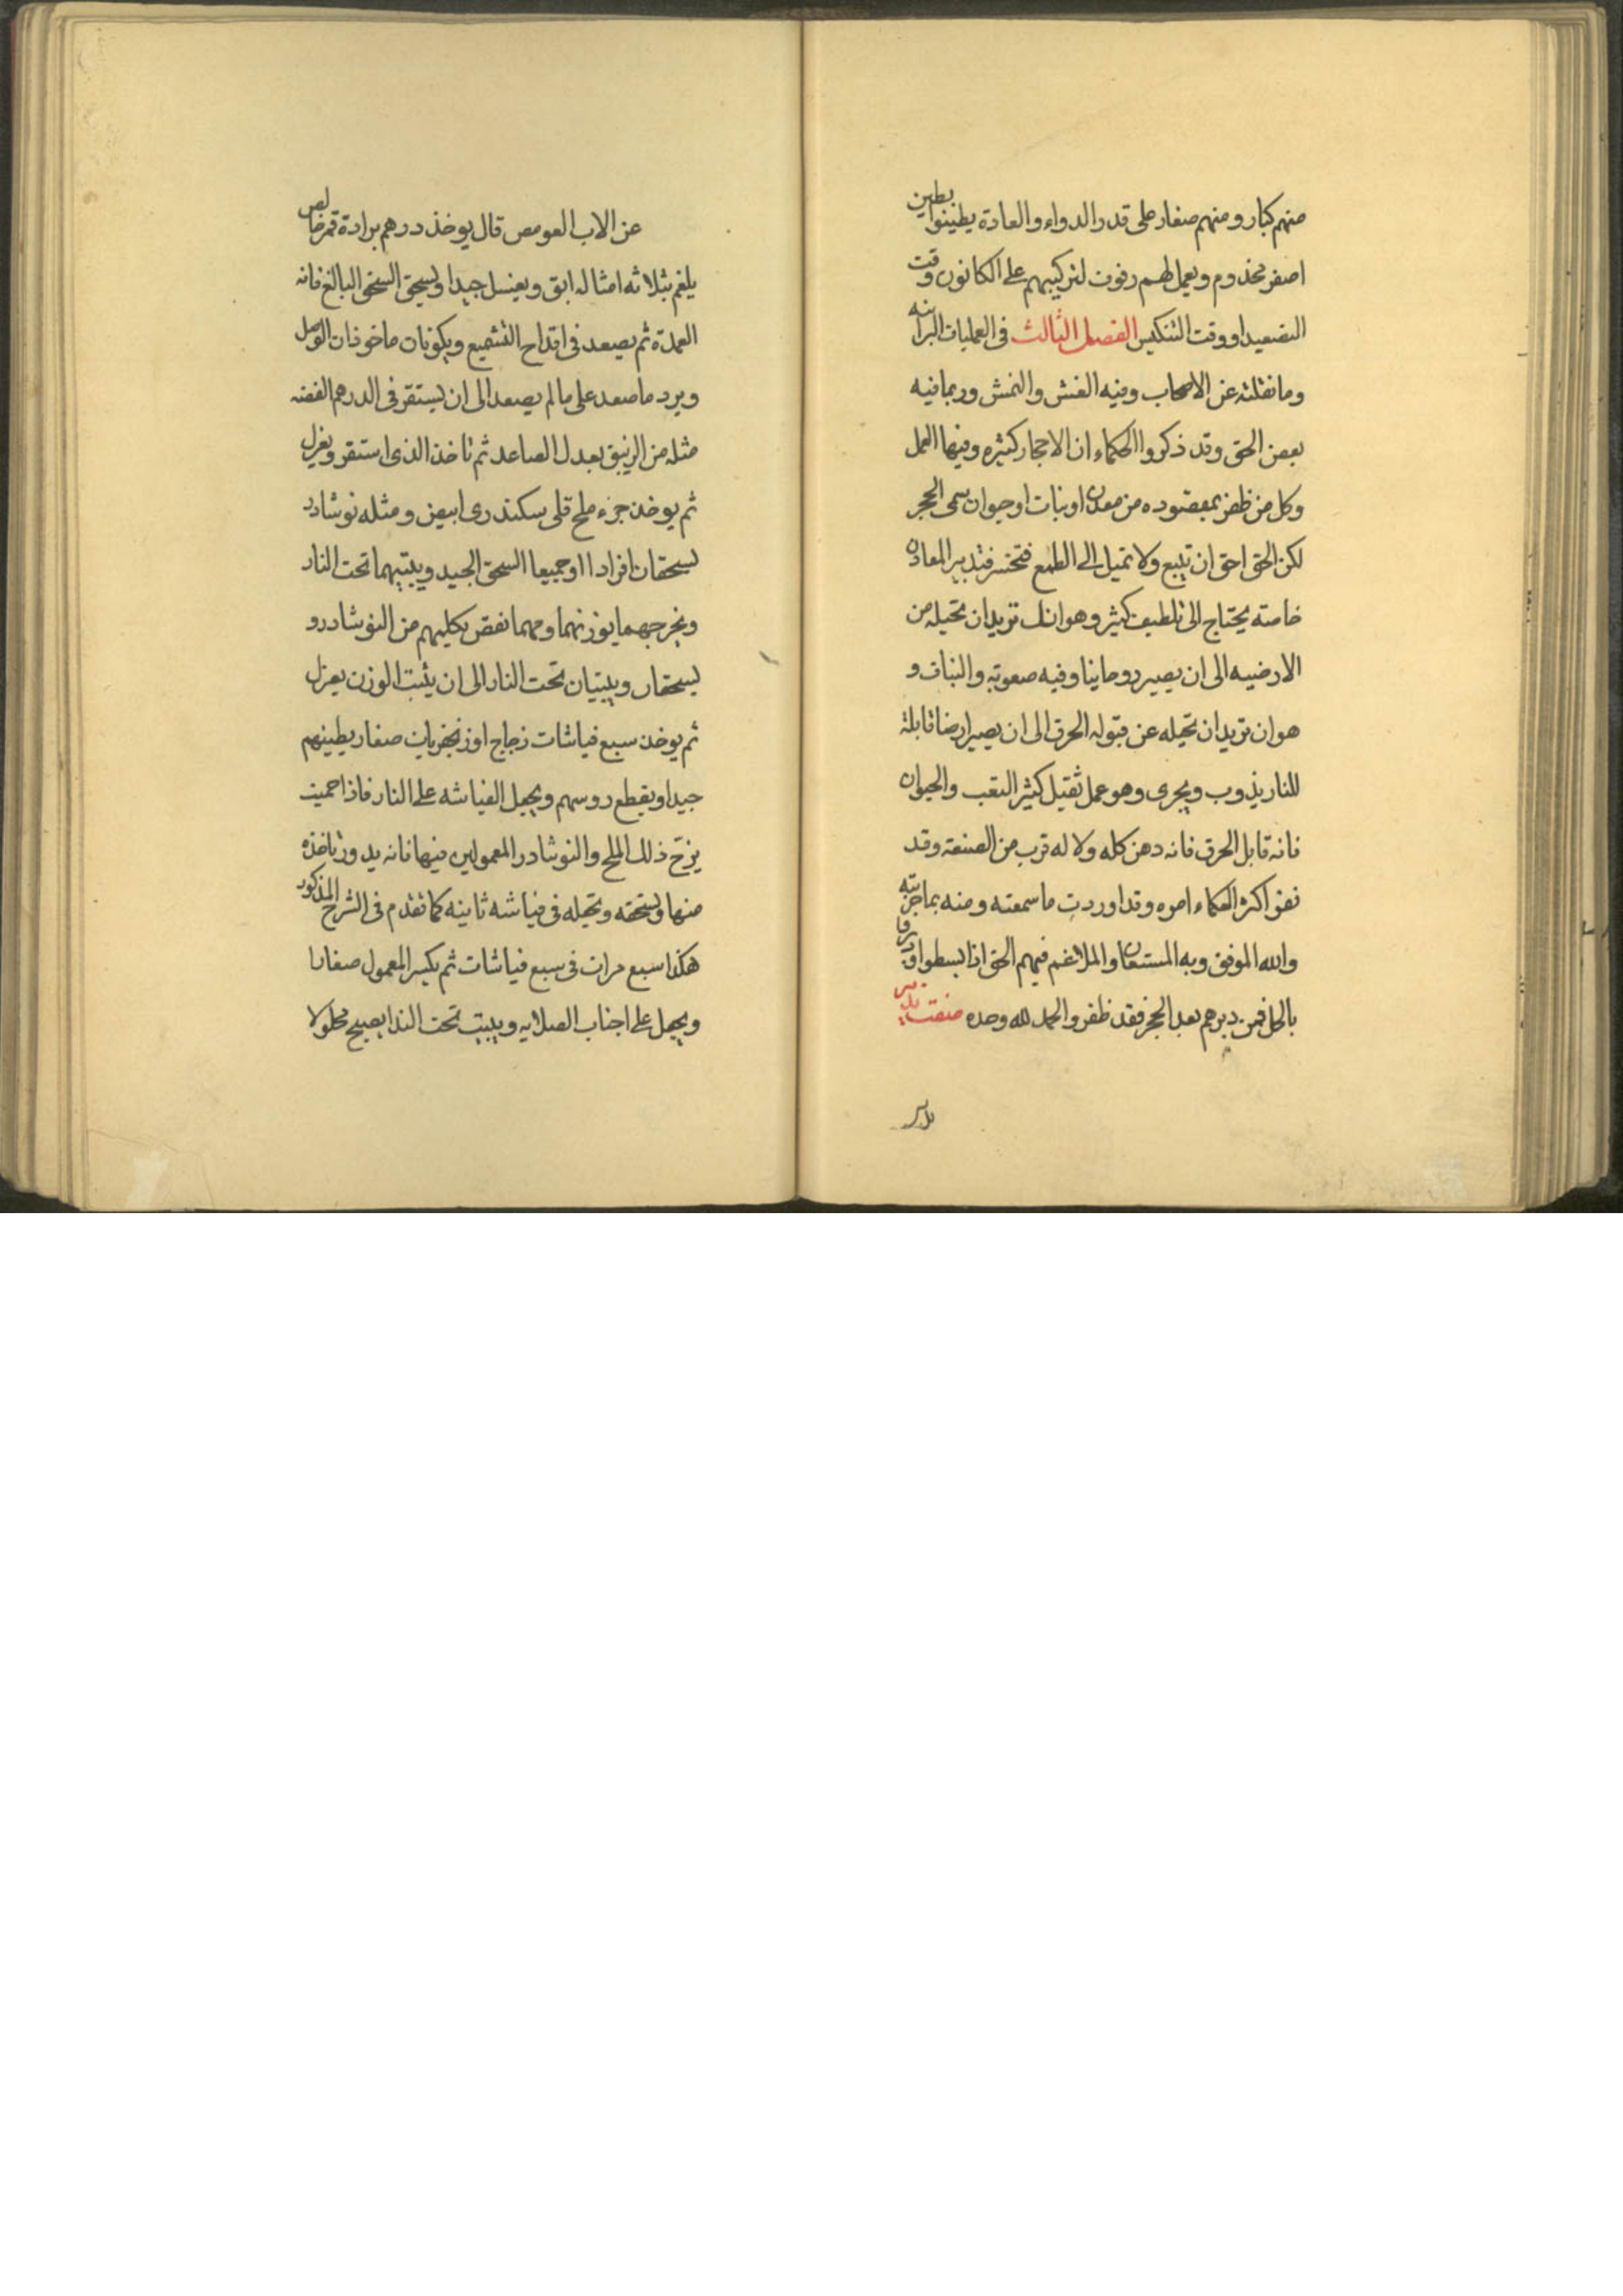 منهم كبار ومنهم صغار على قدر الدواء والعادة يطينوا بطين
اصفر مخدوم ويعمل لهم رفوت لتركيبهم على الكانون وقت
التصعيد او وقت التنكيس الفصل الثالث فى العمليات البرانيه
وما نقلته عن الاصحاب وفيه الغش والنمش وربما فيه
بعض الحق وقد ذكروا الحكماء ان الاحجار كثيره وفيها العمل
وكل من ظفر بمقصوده من معدن او نبات او حيوان سمى الحجر
لكن الحق احق ان تتبع ولا تميل الى الطمع فتخسر فتدبير المعادن
خاصته يحتاج الى تلطيف كثير وهو انك تريد ان تحيله من
الارضيه الى ان يصير روحانيا وفيه صعوبة والنبات و
هو ان تريد ان تحيله عن قبوله الحرق الى ان يصير ارضا قابلة
للنار يذوب ويجرى وهو عمل ثقيل كثير التعب والحيوان
فانه قابل الحرق فانه دهن كله ولا له قرب من الصنعة وقد
نفو اكثر الحكماء امره وقد اوردت ما سمعته ومنه بما جربته
والله الموفق وبه المستعان والملاغم فيهم الحق اذا بسطوا
بالحل فمن دبرهم بعد الحجر فقد ظفر والحمد لله وحده صفت
عن الاب العومص قال يوخذ درهم برادة قمر خالص
يلغم بثلاثه امثاله ابق ويغسل جيدا ويسحق السحق البالغ فانه
العمدة ثم يصعد فى اقداح التشميع ويكونان ماخوذان الوصل
ويرد ما صعد على ما لم يصعد الى ان يستقر فى الدرهم الفضة
مثله من الزيبق بعدل الصاعد ثم تاخذ الذى استقر ويعزل
ثم يوخذ جزء ملح قلى سكندرى ابيض ومثله نوشادر
يسحقان افرادا او جميعا السحق الجيد ويبيتهما تحت النار
ويخرجهما يوزنهما ومهما نقص يكليهم من النوشادر و
يسحقان ويبيتان تحت النار الى ان يثبت الوزن يعزل
ثم يوخذ سبع فياشات زجاج او زنجفريات صغار يطينهم
جيدا ويقطع روسهم ويجعل الفياشه على النار فاذا حميت
يزتج ذلك الملح والنوشادر المعمولين فيها فانه يدور تاخذه
منها وتسحقه وتجعله فى فياشه ثانيه كما تقدم فى الشرح المذكور
هكذا سبع مرات فى سبع فياشات ثم يكسر المعمول صغارا
ويجعل على اجناب الصلايه ويبيت تحت الندا يصبح محلولا